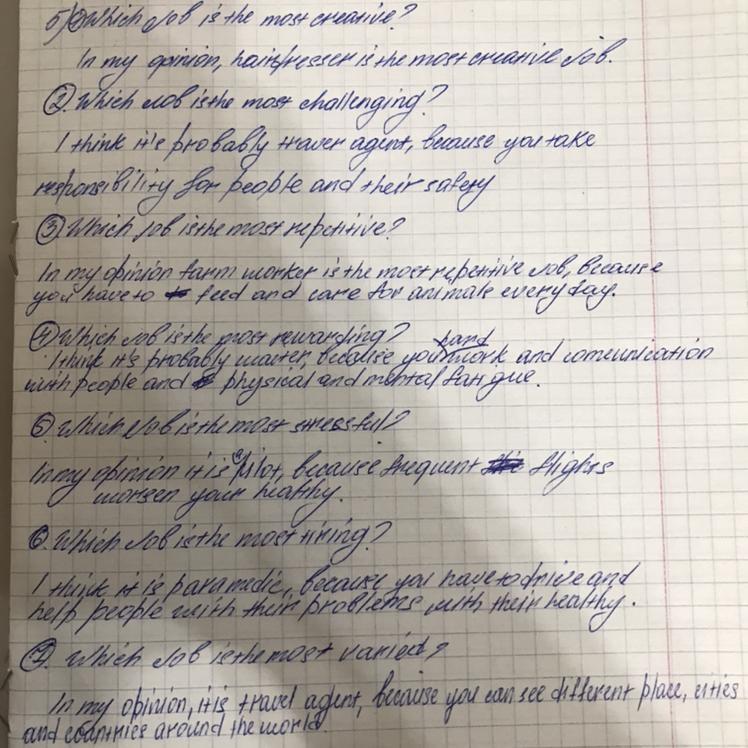 5) ① Which job is the most creative?
In my opinion, hairdresser is the most creative job.
② Which job is the most challenging?
I think it's probably traver agent, because you take
responsibility for people and their safety
③ Which job is the most repetitive?
In my opinion farm worker is the most repetitive job, because
you have to feed and care for animals every day.
④ Which job is the most rewarding?
I think it's probably waiter, because your hard work and comeunication
with people and physical and mental fatigue.
⑤ Which job is the most stressful?
In my opinion it is a pilot, because frequent flights
worsen your healthy.
⑥. Which job is the most tiring?
I think it is paramedic, because you have to drive and
help people with their problems with their healthy.
⑦. Which job is the most varied?
In my opinion, it is travel agent, because you can see different place, cities
and countries around the world.